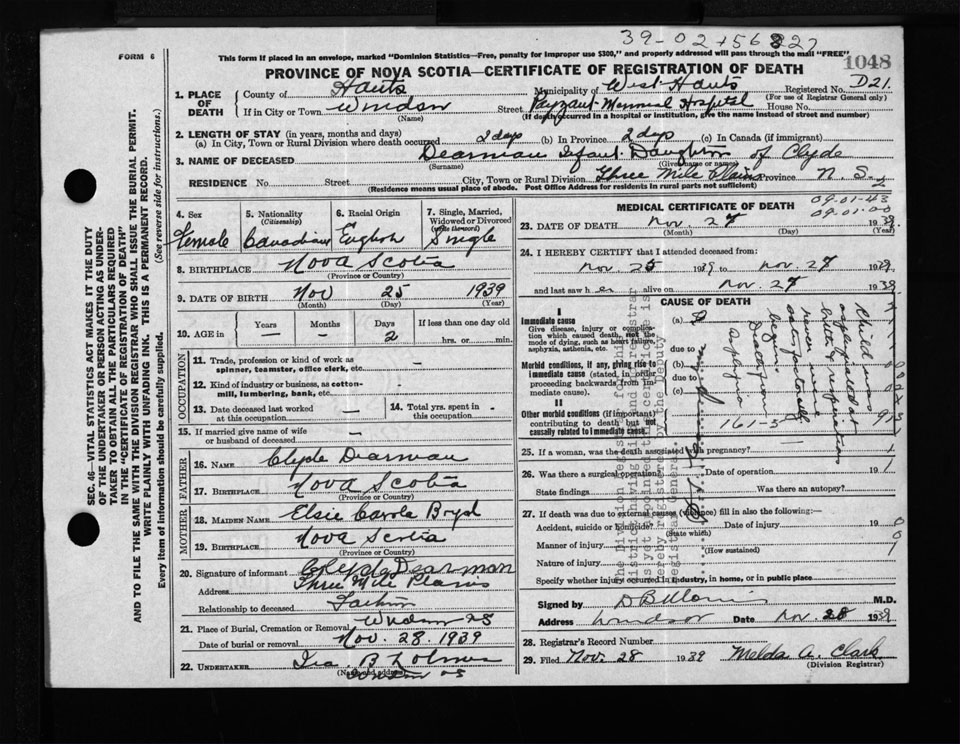 39-02456827
FORM 6
This form if to be placed in an envelope, marked "Dominion Statistics—Free, penalty for improper use $300," and properly addressed will pass through the mail "FREE"
1048
PROVINCE OF NOVA SCOTIA—CERTIFICATE OF REGISTRATION OF DEATH
1. PLACE OF DEATH
County of Hants
Municipality of West Hants
Registered No. D21.
(For use of Registrar General only)
If in City or Town Windsor (Name)
Street Payzant Memorial Hospital House No.
(If death occurred in a hospital or institution, give the name instead of street and number)
2. LENGTH OF STAY (in years, months and days)
(a) In City, Town or Rural Division where death occurred 2 days (b) In Province 2 days (c) In Canada (if immigrant)
3. NAME OF DECEASED Dearman Infant Daughter of Clyde
(Surname) (Given name or names)
RESIDENCE No. Street City, Town or Rural Division Three Mile Plains Province N. S.
(Residence means usual place of abode. Post Office Address for residents in rural parts not sufficient)
4. Sex Female
5. Nationality (Citizenship) Canadian
6. Racial Origin English
7. Single, Married, Widowed or Divorced (write the word) Single
8. BIRTHPLACE Nova Scotia
(Province or Country)
9. DATE OF BIRTH Nov 25 1939
(Month) (Day) (Year)
10. AGE in Years Months Days 2 If less than one day old hrs. or min.
OCCUPATION
11. Trade, profession or kind of work as spinner, teamster, office clerk, etc. —
12. Kind of industry or business, as cotton-mill, lumbering, bank, etc. —
13. Date deceased last worked at this occupation —
14. Total yrs. spent in this occupation -
15. If married give name of wife or husband of deceased —
FATHER
16. NAME Clyde Dearman
17. BIRTHPLACE Nova Scotia
(Province or Country)
MOTHER
18. MAIDEN NAME Elsie Carola Boyd
19. BIRTHPLACE Nova Scotia
(Province or Country)
20. Signature of informant Clyde Dearman
Address Three Mile Plains
Relationship to deceased Father
21. Place of Burial, Cremation or Removal Windsor NS
Date of burial or removal Nov. 28. 1939
22. UNDERTAKER Ira B
(Name and address)
MEDICAL CERTIFICATE OF DEATH
09-01-43
23. DATE OF DEATH Nov. 27 1939.
(Month) (Day) (Year)
24. I HEREBY CERTIFY that I attended deceased from
Nov. 25 1939 to Nov. 27 1939
and last saw her alive on Nov. 27 1939
CAUSE OF DEATH
I
Immediate cause
Give disease, injury or complication which caused death, not the mode of dying, such as heart failure, asphyxia, asthenia, etc.
Morbid conditions, if any, giving rise to immediate cause (stated in order proceeding backwards from immediate cause).
II
Other morbid conditions (if important) contributing to death but not causally related to immediate cause.
(a)
due to
(b)
due to
(c)
Child was
birth & respirations
never were
satisfactorily
begun.
Death from
asphyxia
161-5
25. If a woman, was the death associated with pregnancy?
26. Was there a surgical operation? Date of operation 19
State findings Was there an autopsy?
27. If death was due to external causes (violence) fill in also the following:—
Accident, suicide or homicide? Date of injury 19
(State which)
Manner of injury
(How sustained)
Nature of injury
Specify whether injury occurred in industry, in home, or in public place
Signed by M.D.
Address Windsor Date Nov. 28 1939
28. Registrar's Record Number
29. Filed Nov. 28 1939 Melda A. Clark
(Division Registrar)
SEC. 46—VITAL STATISTICS ACT MAKES IT THE DUTY
OF THE UNDERTAKER OR PERSON ACTING AS UNDER-
TAKER TO OBTAIN ALL THE PARTICULARS REQUIRED
IN THE "CERTIFICATE OF REGISTRATION OF DEATH"
AND TO FILE THE SAME WITH THE DIVISION REGISTRAR WHO SHALL ISSUE THE BURIAL PERMIT.
WRITE PLAINLY WITH UNFADING INK. THIS IS A PERMANENT RECORD.
Every item of information should be carefully supplied.
(See reverse side for instructions.)